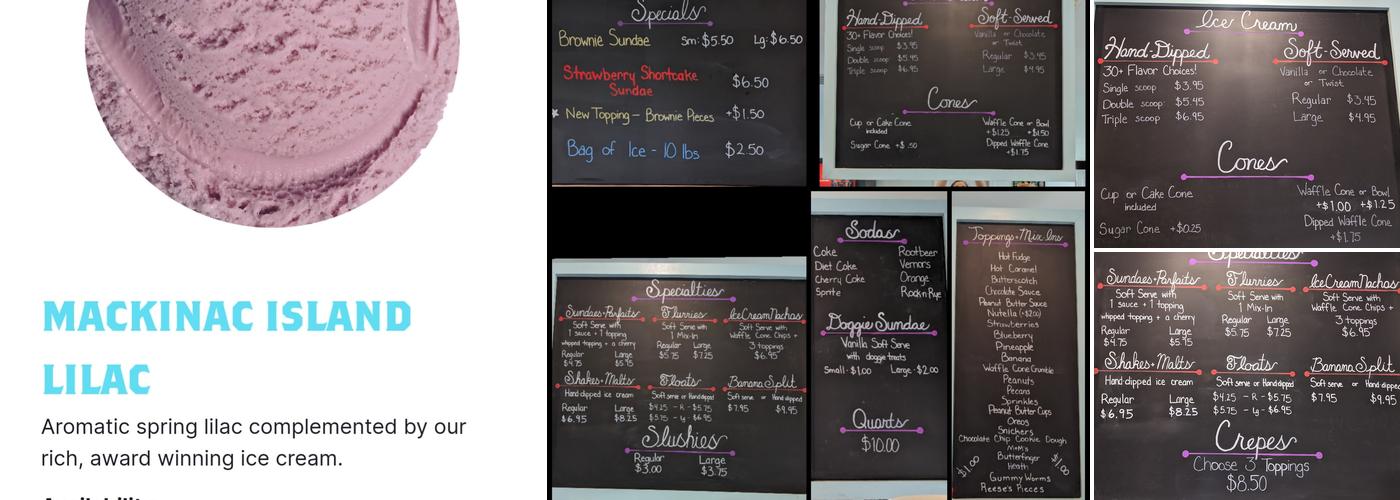 MACKINAC ISLAND
LILAC
Aromatic spring lilac complemented by our
rich, award winning ice cream.
Specials
Brownie Sundae Sm: $5.50 Lg: $6.50
Strawberry Shortcake
Sundae $6.50
New Topping - Brownie Pieces +$1.50
Bag of Ice - 10 lbs $2.50
Hand-Dipped
30+ Flavor Choices!
Single scoop $3.95
Double scoop $5.45
Triple scoop $6.95
Soft-Served
Vanilla or Chocolate
or Twist
Regular $3.45
Large $4.95
Cones
Cup or Cake Cone
included
Sugar Cone +$.50
Waffle Cone or Bowl
+$1.25 +$1.50
Dipped Waffle Cone
+$1.75
Ice Cream
Hand-Dipped
30+ Flavor Choices!
Single scoop $3.95
Double scoop $5.45
Triple scoop $6.95
Soft-Served
Vanilla or Chocolate
or Twist
Regular $3.45
Large $4.95
Cones
Cup or Cake Cone
included
Sugar Cone +$0.25
Waffle Cone or Bowl
+$1.00 +$1.25
Dipped Waffle Cone
+$1.75
Specialties
Sundaes+Parfaits
Soft Serve with
1 sauce + 1 topping
whipped topping + a cherry
Regular Large
$4.75 $5.95
Flurries
Soft Serve with
1 Mix-In
Regular Large
$5.75 $7.25
Ice Cream Nachos
Soft Serve with
Waffle Cone Chips +
3 toppings
$6.95
Shakes+Malts
Hand-dipped ice cream
Regular Large
$6.95 $8.25
Floats
Soft serve or Hand-dipped
$4.25 - R - $5.75
$5.75 - Lg - $6.95
Banana Split
Soft serve or Hand-dipped
$7.95 $9.95
Slushies
Regular Large
$3.00 $3.75
Sodas
Coke Rootbeer
Diet Coke Vernors
Cherry Coke Orange
Sprite Rock n Rye
Doggie Sundae
Vanilla Soft Serve
with doggie treats
Small - $1.00 Large - $2.00
Quarts
$10.00
Toppings+Mix-Ins
Hot Fudge
Hot Caramel
Butterscotch
Chocolate Sauce
Peanut Butter Sauce
Nutella (+$2.00)
Strawberries
Blueberry
Pineapple
Banana
Waffle Cone Crumble
Peanuts
Pecans
Sprinkles
Peanut Butter Cups
Oreos
Snickers
Chocolate Chip Cookie Dough
M+M's
$1.00 Butterfinger $1.00
Heath
Gummy Worms
Reese's Pieces
Specialties
Sundaes+Parfaits
Soft Serve with
1 sauce + 1 topping
whipped topping + a cherry
Regular Large
$4.75 $5.95
Flurries
Soft Serve with
1 Mix-In
Regular Large
$5.75 $7.25
Ice Cream Nachos
Soft Serve with
Waffle Cone Chips +
3 toppings
$6.95
Shakes+Malts
Hand-dipped ice cream
Regular Large
$6.95 $8.25
Floats
Soft serve or Hand-dipped
$4.25 - R - $5.75
$5.75 - Lg - $6.95
Banana Split
Soft serve or Hand-dipped
$7.95 $9.95
Crepes
Choose 3 Toppings
$8.50